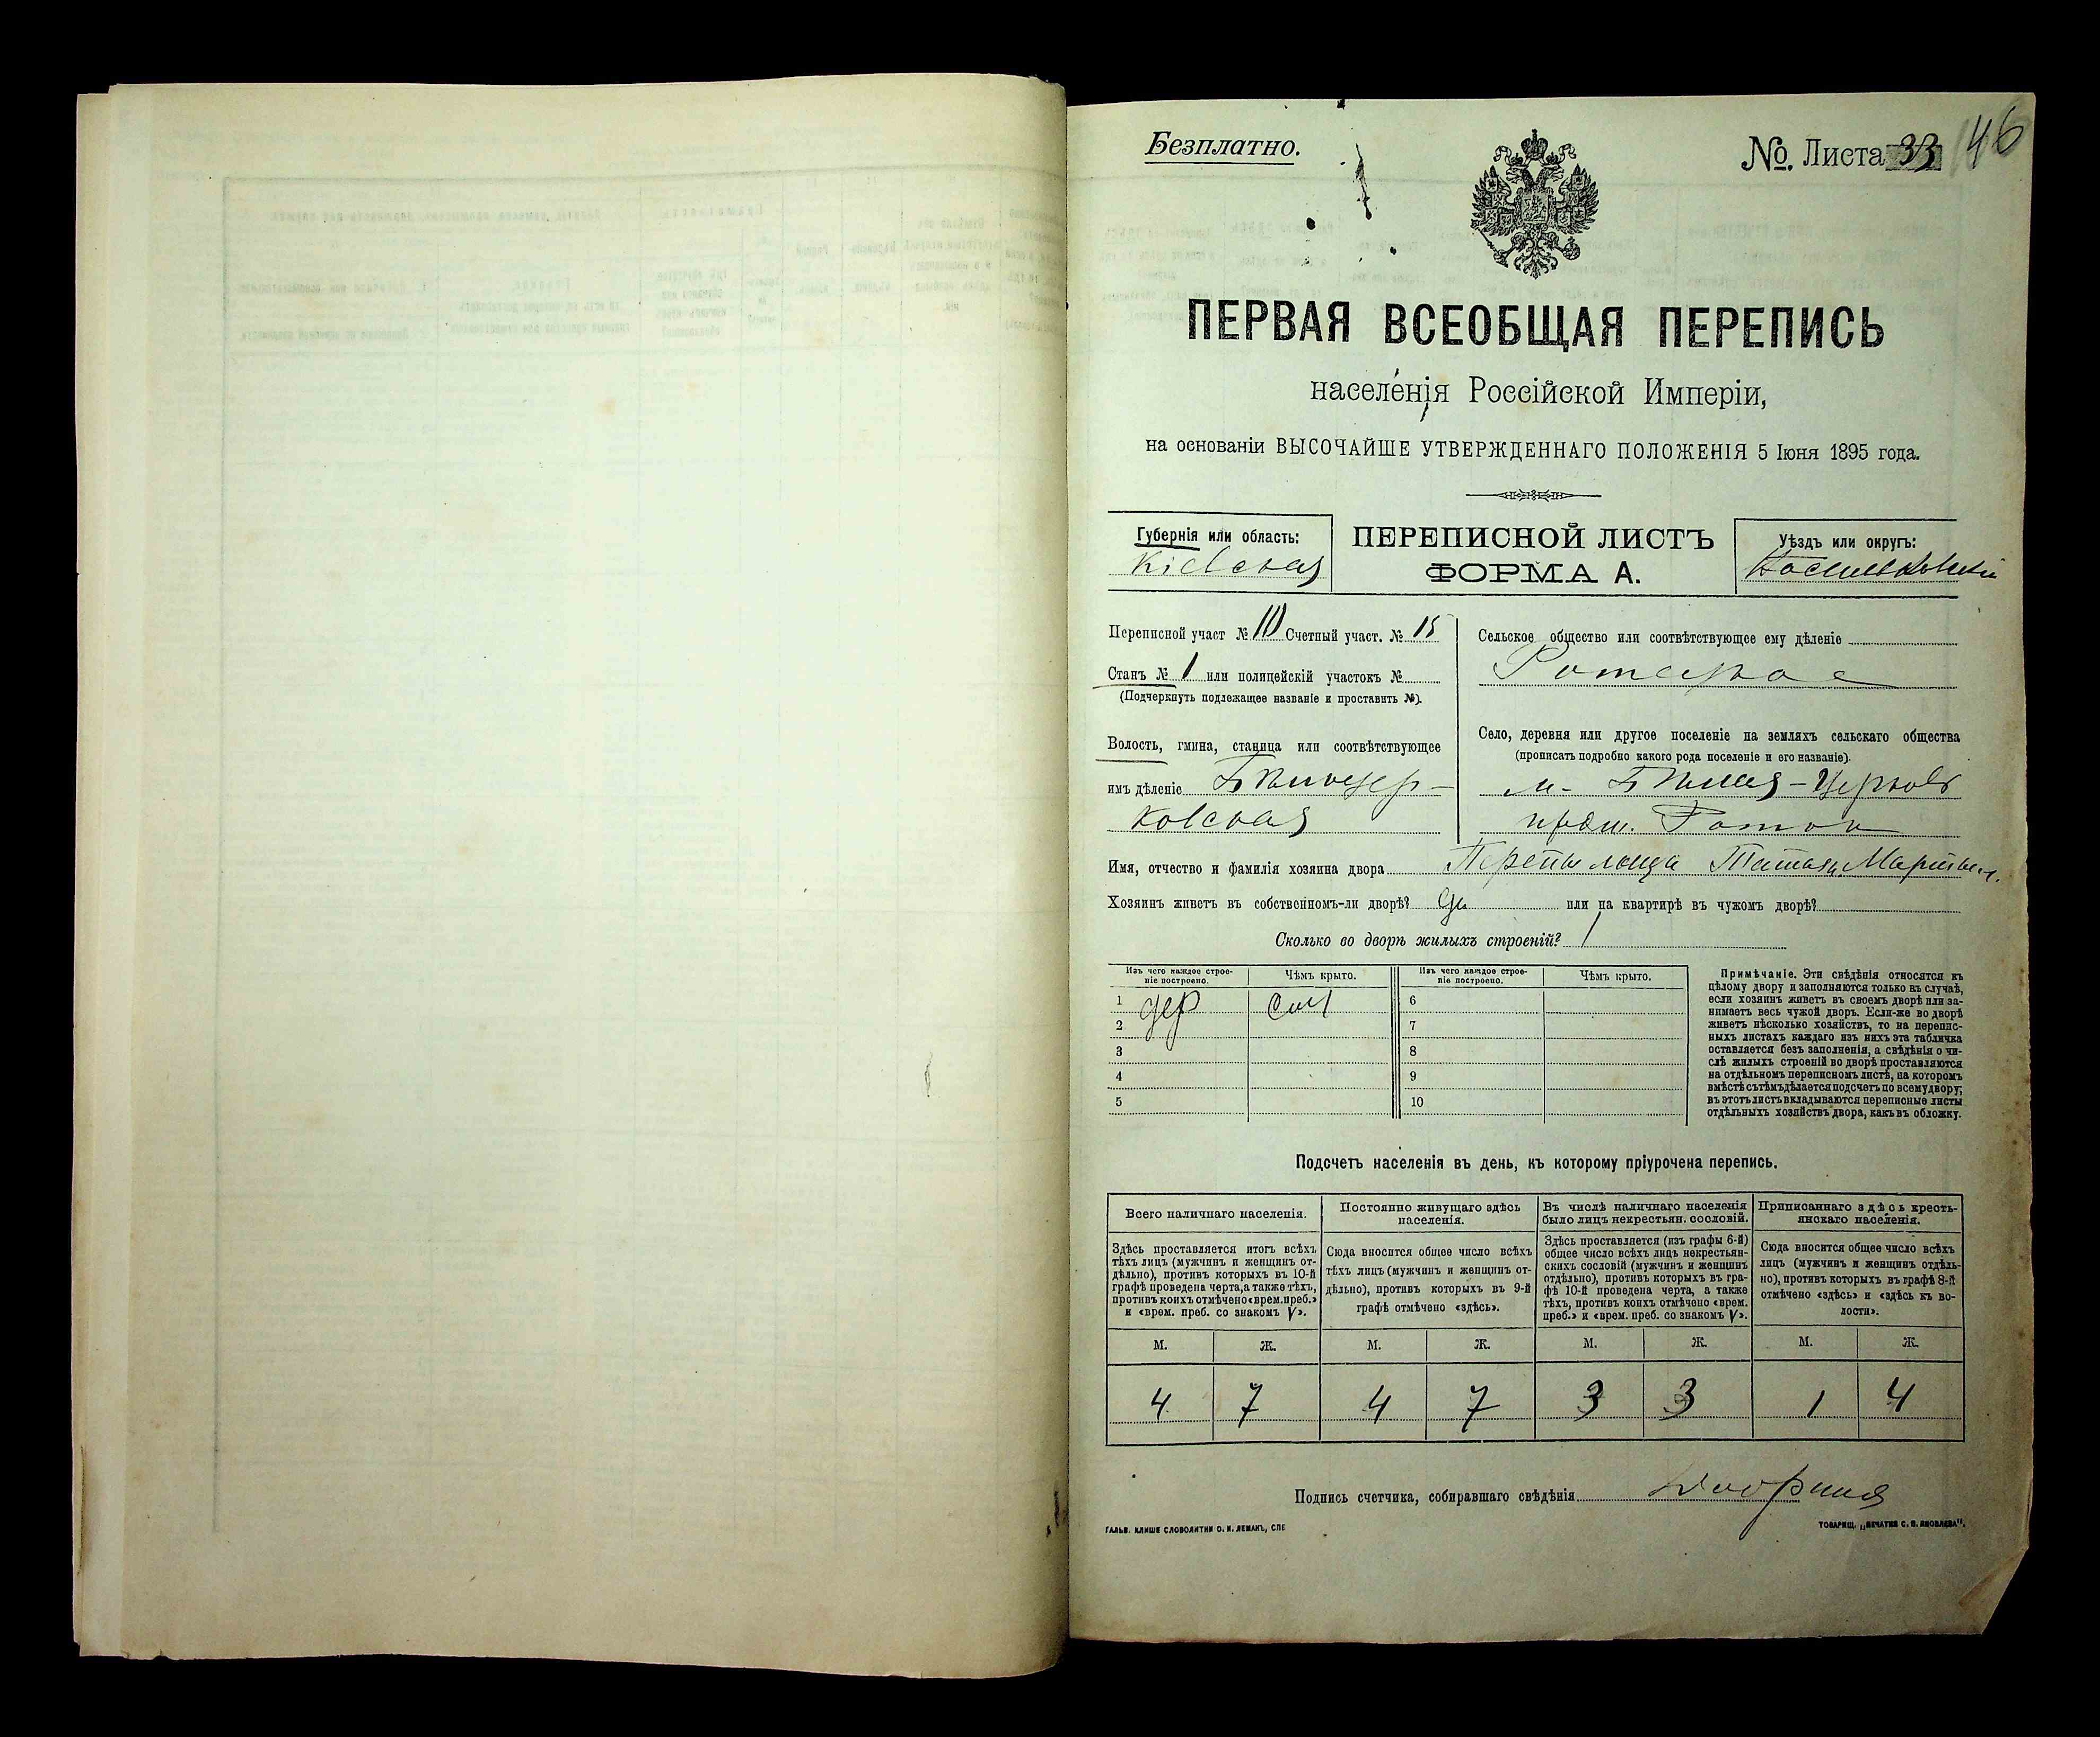 Безплатно.
№. Листа 33 46
ПЕРВАЯ ВСЕОБЩАЯ ПЕРЕПИСЬ
населенія Россійской Имперіи,
на основаніи ВЫСОЧАЙШЕ УТВЕРЖДЕННАГО ПОЛОЖЕНІЯ 5 Іюня 1895 года.
Губернія или область:
Кіевская
ПЕРЕПИСНОЙ ЛИСТЪ
ФОРМА А.
Уѣздъ или округъ:
Переписной участ № 10 Счетный участ. № 15
Станъ № 1 или полицейскій участокъ №
(Подчеркнуть подлежащее названіе и проставить №).
Волость, гмина, станица или соотвѣтствующее
имъ дѣленіе Бѣлоцер-
ковская
Сельское общество или соотвѣтствующее ему дѣленіе
Село, деревня или другое поселеніе на земляхъ сельскаго общества
(прописать подробно какого рода поселеніе и его названіе).
м. Бѣлая-Церковь
предм. Ротокъ
Имя, отчество и фамилія хозяина двора
Хозяинъ живетъ въ собственномъ-ли дворѣ? Да или на квартирѣ въ чужомъ дворѣ?
Сколько во дворѣ жилыхъ строеній? 1
Изъ чего каждое строе-
ніе построено.
Чѣмъ крыто.
Изъ чего каждое строе-
ніе построено.
Чѣмъ крыто.
1 дер сол 6
2 7
3 8
4 9
5 10
Примѣчаніе. Эти свѣдѣнія относятся къ
цѣлому двору и заполняются только въ случаѣ,
если хозяинъ живетъ въ своемъ дворѣ или за-
нимаетъ весь чужой дворъ. Если-же во дворѣ
живетъ нѣсколько хозяйствъ, то на перепис-
ныхъ листахъ каждаго изъ нихъ эта табличка
оставляется безъ заполненія, а свѣдѣнія о чи-
слѣ жилыхъ строеній во дворѣ проставляются
на отдѣльномъ переписномъ листѣ, на которомъ
вмѣстѣ съ тѣмъ дѣлается подсчетъ по всему двору;
въ этотъ листъ вкладываются переписные листы
отдѣльныхъ хозяйствъ двора, какъ въ обложку.
Подсчетъ населенія въ день, къ которому пріурочена перепись.
Всего наличнаго населенія.
Здѣсь проставляется итогъ всѣхъ
тѣхъ лицъ (мужчинъ и женщинъ от-
дѣльно), противъ которыхъ въ 10-й
графѣ проведена черта, а также тѣхъ,
противъ коихъ отмѣчено «врем. преб.»
и «врем. преб. со знакомъ V».
Постоянно живущаго здѣсь
населенія.
Сюда вносится общее число всѣхъ
тѣхъ лицъ (мужчинъ и женщинъ от-
дѣльно), противъ которыхъ въ 9-й
графѣ отмѣчено «здѣсь».
Въ числѣ наличнаго населенія
было лицъ некрестьян. сословій.
Здѣсь проставляется (изъ графы 6-й)
общее число всѣхъ лицъ некрестьян-
скихъ сословій (мужчинъ и женщинъ
отдѣльно), противъ которыхъ въ гра-
фѣ 10-й проведена черта, а также
тѣхъ, противъ коихъ отмѣчено «врем.
преб.» и «врем. преб. со знакомъ V».
Приписаннаго здѣсь кресть-
янскаго населенія.
Сюда вносится общее число всѣхъ
лицъ (мужчинъ и женщинъ отдѣль-
но), противъ которыхъ въ графѣ 8-й
отмѣчено «здѣсь» и «здѣсь къ во-
лости».
М. Ж. М. Ж. М. Ж. М. Ж.
4 7 4 7 3 3 1 4
Подпись счетчика, собиравшаго свѣдѣнія
ГАЛЬВ. КЛИШЕ СЛОВОЛИТНИ О. И. ЛЕМАНЪ, СПБ
ТОВАРИЩ. „ПЕЧАТНЯ С. П. ЯКОВЛЕВА“.